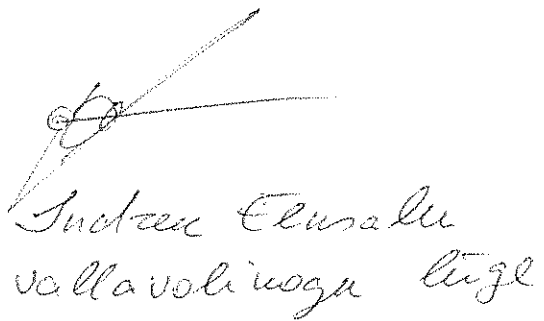 Indrek Eensalu
vallavolinogu liige